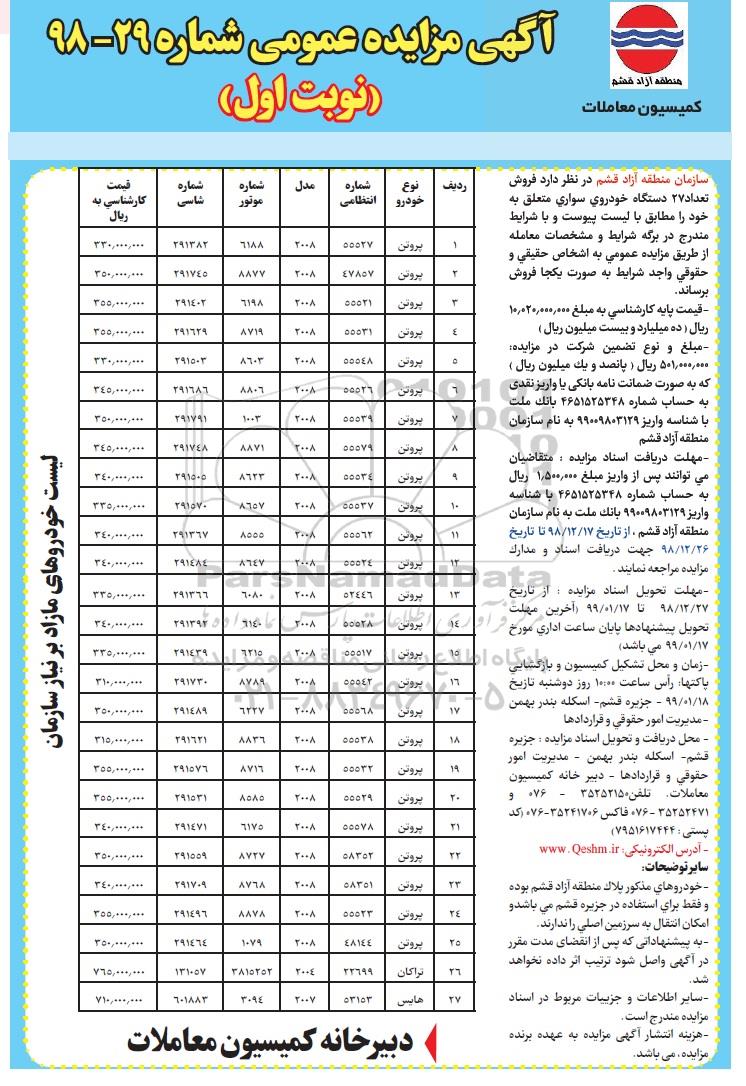 آگهی مزایده عمومی شماره ۲۹-۹۸
(نوبت اول)
منطقه آزاد قشم
کمیسیون معاملات
سازمان منطقه آزاد قشم در نظر دارد فروش
تعداد۲۷ دستگاه خودروي سواري متعلق به
خود را مطابق با لیست پیوست و با شرایط
مندرج در برگه شرایط و مشخصات معامله
از طریق مزایده عمومي به اشخاص حقیقي و
حقوقي واجد شرایط به صورت یکجا فروش
برساند.
-قیمت پایه کارشناسي به مبلغ ۱۰,۰۲۰,۰۰۰,۰۰۰
ریال ( ده میلیارد و بیست میلیون ریال )
-مبلغ و نوع تضمین شرکت در مزایده:
۵۰۱,۰۰۰,۰۰۰ ریال ( پانصد و یك میلیون ریال )
که به صورت ضمانت نامه بانکی یا واریز نقدی
به حساب شماره ۴۶۵۱۵۲۵۳۴۸ بانك ملت
با شناسه واریز ۹۹۰۰۹۸۰۳۱۲۹ به نام سازمان
منطقه آزاد قشم
-مهلت دریافت اسناد مزایده : متقاضیان
مي توانند پس از واریز مبلغ ۱,۵۰۰,۰۰۰ ریال
به حساب شماره ۴۶۵۱۵۲۵۳۴۸ با شناسه
واریز ۹۹۰۰۹۸۰۳۱۲۹ بانك ملت به نام سازمان
منطقه آزاد قشم ، از تاریخ ۹۸/۱۲/۱۷ تا تاریخ
۹۸/۱۲/۲۶ جهت دریافت اسناد و مدارك
مزایده مراجعه نمایند .
-مهلت تحویل اسناد مزایده : از تاریخ
۹۸/۱۲/۲۷ تا ۹۹/۰۱/۱۷ (آخرین مهلت
تحویل پیشنهادها پایان ساعت اداري مورخ
۹۹/۰۱/۱۷ مي باشد)
-زمان و محل تشکیل کمیسیون و بازگشایي
پاکتها: رأس ساعت ۱۰:۰۰ روز دوشنبه تاریخ
۹۹/۰۱/۱۸ - جزیره قشم- اسکله بندر بهمن
-مدیریت امور حقوقي و قراردادها
- محل دریافت و تحویل اسناد مزایده : جزیره
قشم- اسکله بندر بهمن - مدیریت امور
حقوقي و قراردادها - دبیر خانه کمیسیون
معاملات. تلفن۳۵۲۵۲۱۵۰ - ۰۷۶ و
۳۵۲۵۲۴۷۱ -۰۷۶ فاکس ۳۵۲۴۱۷۰۶-۰۷۶ (کد
پستی : ۷۹۵۱۶۱۷۴۴۴)
- آدرس الکترونیکی: www.Qeshm.ir
سایر توضیحات:
-خودروهاي مذکور پلاك منطقه آزاد قشم بوده
و فقط براي استفاده در جزیره قشم مي باشدو
امکان انتقال به سرزمین اصلي را ندارند.
-به پیشنهاداتی که پس از انقضای مدت مقرر
در آگهی واصل شود ترتیب اثر داده نخواهد
شد.
-سایر اطلاعات و جزییات مربوط در اسناد
مزایده مندرج است.
-هزینه انتشار آگهی مزایده به عهده برنده
مزایده، می باشد.
ردیف نوع خودرو شماره انتظامی مدل شماره موتور شماره شاسی قیمت کارشناسي به ریال
۱ پروتن ۵۵۵۲۷ ۲۰۰۸ ۶۱۸۸ ۲۹۱۳۸۲ ۳۳۰,۰۰۰,۰۰۰
۲ پروتن ۴۷۸۵۷ ۲۰۰۸ ۸۸۷۷ ۲۹۱۷۴۵ ۳۵۰,۰۰۰,۰۰۰
۳ پروتن ۵۵۵۲۱ ۲۰۰۸ ۶۱۹۸ ۲۹۱۴۰۲ ۳۵۵,۰۰۰,۰۰۰
۴ پروتن ۵۵۵۳۱ ۲۰۰۸ ۸۷۱۹ ۲۹۱۶۲۹ ۳۵۵,۰۰۰,۰۰۰
۵ پروتن ۵۵۵۴۸ ۲۰۰۸ ۸۶۰۳ ۲۹۱۵۰۳ ۳۳۰,۰۰۰,۰۰۰
۶ پروتن ۵۵۵۲۶ ۲۰۰۸ ۸۸۰۶ ۲۹۱۶۸۶ ۳۴۵,۰۰۰,۰۰۰
۷ پروتن ۵۵۵۳۹ ۲۰۰۸ ۱۰۰۳ ۲۹۱۷۹۱ ۳۵۰,۰۰۰,۰۰۰
۸ پروتن ۵۵۵۷۹ ۲۰۰۸ ۸۸۷۱ ۲۹۱۷۴۸ ۳۴۵,۰۰۰,۰۰۰
۹ پروتن ۵۵۵۳۴ ۲۰۰۸ ۸۶۲۳ ۲۹۱۵۰۵ ۳۴۰,۰۰۰,۰۰۰
۱۰ پروتن ۵۵۵۳۷ ۲۰۰۸ ۸۶۵۷ ۲۹۱۵۷۰ ۳۳۵,۰۰۰,۰۰۰
۱۱ پروتن ۵۵۵۶۲ ۲۰۰۸ ۸۵۵۵ ۲۹۱۳۶۷ ۳۴۰,۰۰۰,۰۰۰
۱۲ پروتن ۵۵۵۲۴ ۲۰۰۸ ۸۶۴۷ ۲۹۱۴۸۴ ۳۴۰,۰۰۰,۰۰۰
۱۳ پروتن ۵۲۴۴۶ ۲۰۰۸ ۶۰۸۰ ۲۹۱۳۶۶ ۳۳۵,۰۰۰,۰۰۰
۱۴ پروتن ۵۵۵۲۸ ۲۰۰۸ ۶۱۴۰ ۲۹۱۳۹۲ ۳۴۰,۰۰۰,۰۰۰
۱۵ پروتن ۵۵۵۱۷ ۲۰۰۸ ۶۲۱۵ ۲۹۱۴۳۹ ۳۳۵,۰۰۰,۰۰۰
۱۶ پروتن ۵۵۵۴۲ ۲۰۰۸ ۸۷۸۹ ۲۹۱۷۳۰ ۳۱۰,۰۰۰,۰۰۰
۱۷ پروتن ۵۵۵۶۸ ۲۰۰۸ ۶۲۲۷ ۲۹۱۴۸۹ ۳۵۰,۰۰۰,۰۰۰
۱۸ پروتن ۵۵۵۳۸ ۲۰۰۸ ۸۸۳۶ ۲۹۱۶۲۱ ۳۱۵,۰۰۰,۰۰۰
۱۹ پروتن ۵۵۵۳۲ ۲۰۰۸ ۸۷۱۶ ۲۹۱۵۷۶ ۳۵۵,۰۰۰,۰۰۰
۲۰ پروتن ۵۵۵۲۹ ۲۰۰۸ ۸۵۸۵ ۲۹۱۵۳۱ ۳۵۵,۰۰۰,۰۰۰
۲۱ پروتن ۵۵۵۷۸ ۲۰۰۸ ۶۱۷۵ ۲۹۱۴۷۱ ۳۴۰,۰۰۰,۰۰۰
۲۲ پروتن ۵۸۳۵۲ ۲۰۰۸ ۸۷۲۷ ۲۹۱۵۵۹ ۳۵۰,۰۰۰,۰۰۰
۲۳ پروتن ۵۸۳۵۱ ۲۰۰۸ ۸۷۶۸ ۲۹۱۷۰۹ ۳۴۰,۰۰۰,۰۰۰
۲۴ پروتن ۵۵۵۲۳ ۲۰۰۸ ۸۸۷۸ ۲۹۱۴۹۶ ۳۵۵,۰۰۰,۰۰۰
۲۵ پروتن ۴۸۱۴۴ ۲۰۰۸ ۱۰۷۹ ۲۹۱۴۶۴ ۳۵۰,۰۰۰,۰۰۰
۲۶ تراکان ۲۲۶۹۹ ۲۰۰۴ ۳۸۱۵۲۵۲ ۱۳۱۰۵۷ ۷۶۵,۰۰۰,۰۰۰
۲۷ هایس ۵۳۱۵۳ ۲۰۰۷ ۳۰۹۴ ۶۰۱۸۸۳ ۷۱۰,۰۰۰,۰۰۰
لیست خودروهای مازاد بر نیاز سازمان
دبیرخانه کمیسیون معاملات
ParsNamadData
پایگاه اطلاع رسانی مناقصه و مزایده
۰۲۱-۸۸۳۴۹۶۷۰-۵